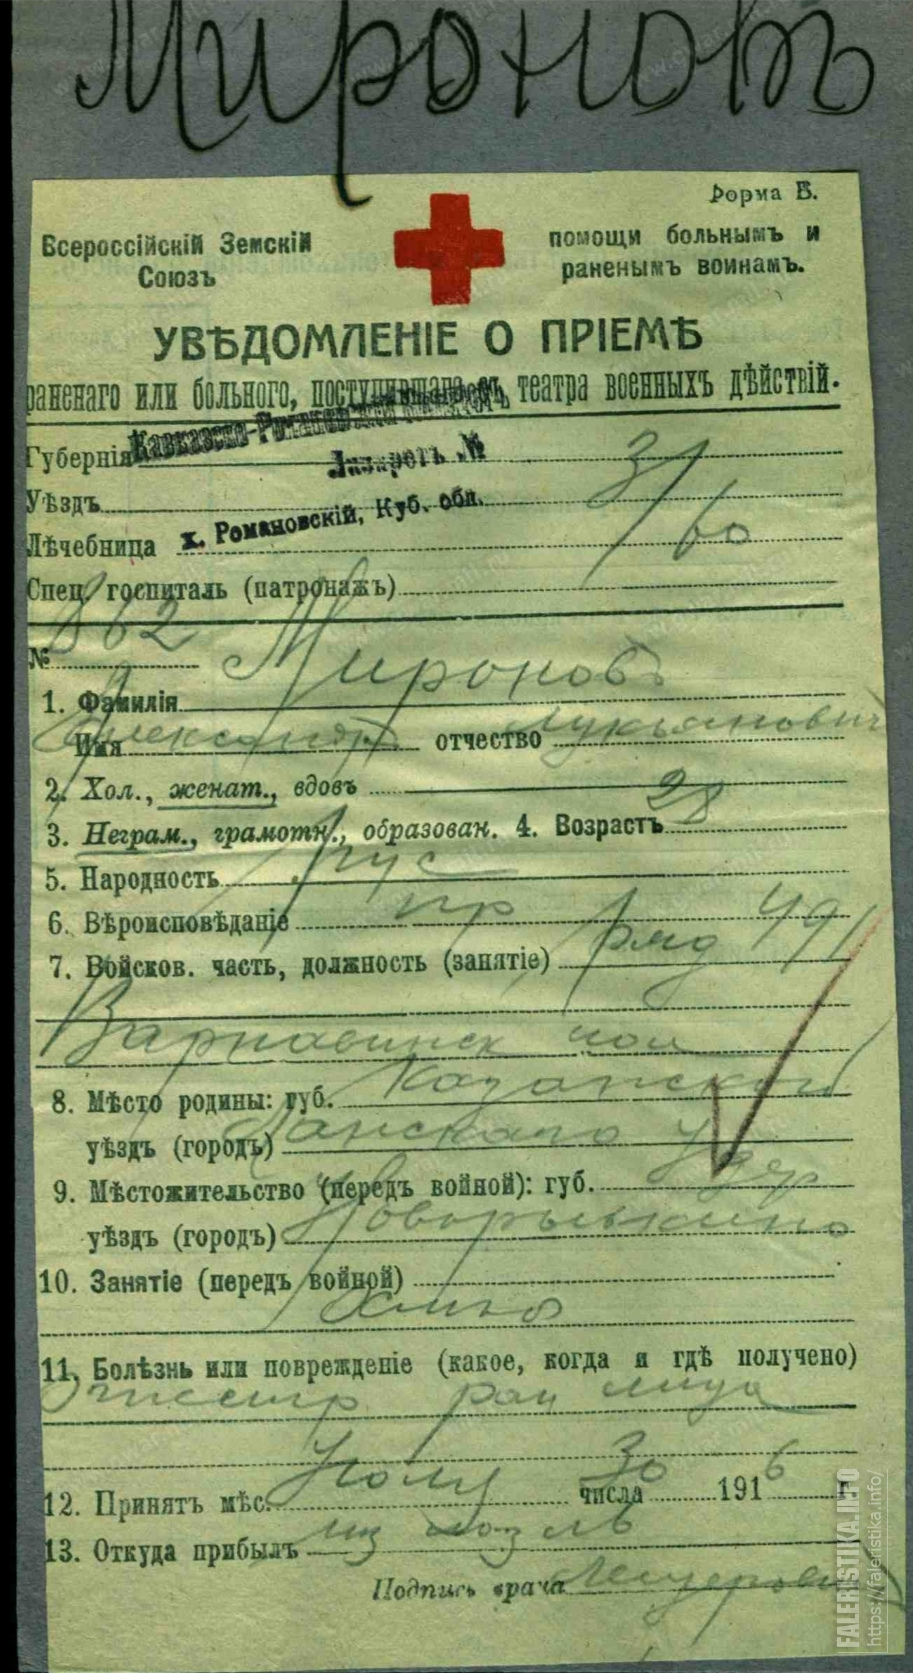 Мироновъ
Форма Б.
Всероссійскій Земскій
Союзъ
помощи больнымъ и
раненымъ воинамъ.
УВѢДОМЛЕНІЕ О ПРІЕМѢ
раненаго или больного, поступившаго съ театра военныхъ дѣйствій.
Кавказско-Романовскій
Губернія
Лазаретъ №
3/60
Уѣздъ
х. Романовскій, Куб. обл.
Лѣчебница
Спец. госпиталь (патронажъ)
№ 862
1. Фамилія Мироновъ
Имя Александръ отчество Лукьянович
2. Хол., женат., вдовъ
3. Неграм., грамотн., образован. 4. Возрастъ 28
5. Народность рус
6. Вѣроисповѣданіе пр
7. Войсков. часть, должность (занятіе) ряд 491
Варнавинск пол
8. Мѣсто родины: губ. Казанской
уѣздъ (городъ)
9. Мѣстожительство (передъ войной): губ. дер
уѣздъ (городъ)
10. Занятіе (передъ войной)
11. Болѣзнь или поврежденіе (какое, когда и гдѣ получено)
Огнестр ран лица
12. Принятъ мѣс. Іюля числа 30 1916 г.
13. Откуда прибылъ из
Подпись врача
FALERISTIKA.INFO
https://faleristika.info/